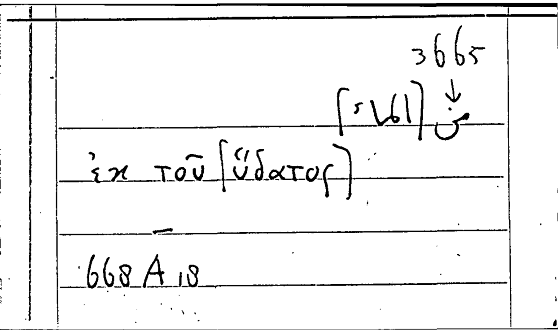 3665
↓
من [الماء]
ἐκ τοῦ [ὕδατος]
668 A 18